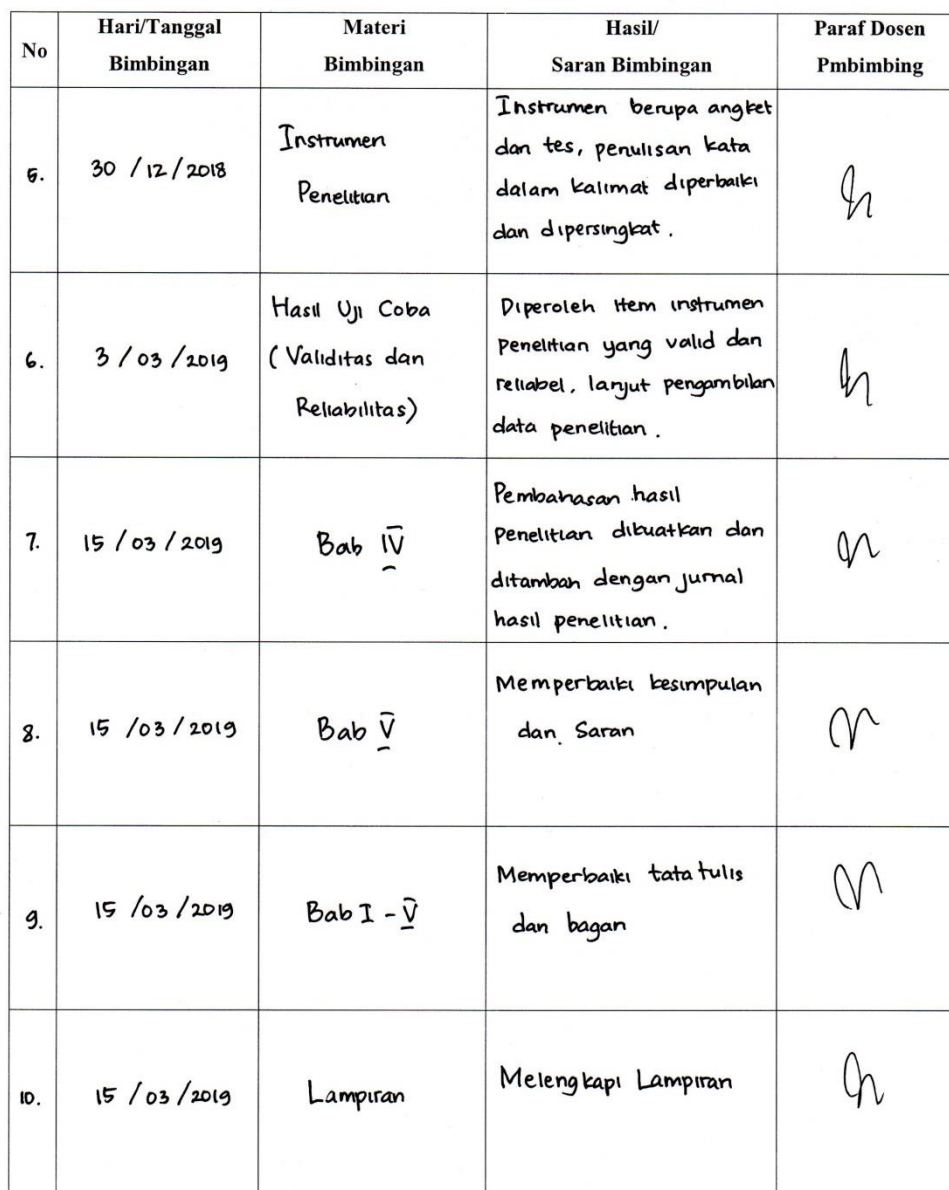 No
Hari/Tanggal
Bimbingan
Materi
Bimbingan
Hasil/
Saran Bimbingan
Paraf Dosen
Pmbimbing
5.
30 /12/2018
Instrumen
Penelitian
Instrumen berupa angket
dan tes, penulisan kata
dalam kalimat diperbaiki
dan dipersingkat.
6.
3/03/2019
Hasil Uji Coba
(Validitas dan
Reliabilitas)
Diperoleh Item instrumen
penelitian yang valid dan
reliabel, lanjut pengambilan
data penelitian.
7.
15/03/2019
Bab IV
Pembahasan hasil
penelitian dibuatkan dan
ditambah dengan jurnal
hasil penelitian.
8.
15 /03/2019
Bab V
Memperbaiki kesimpulan
dan Saran
9.
15 /03/2019
Bab I - V
Memperbaiki tata tulis
dan bagan
10.
15 /03/2019
Lampiran
Melengkapi Lampiran